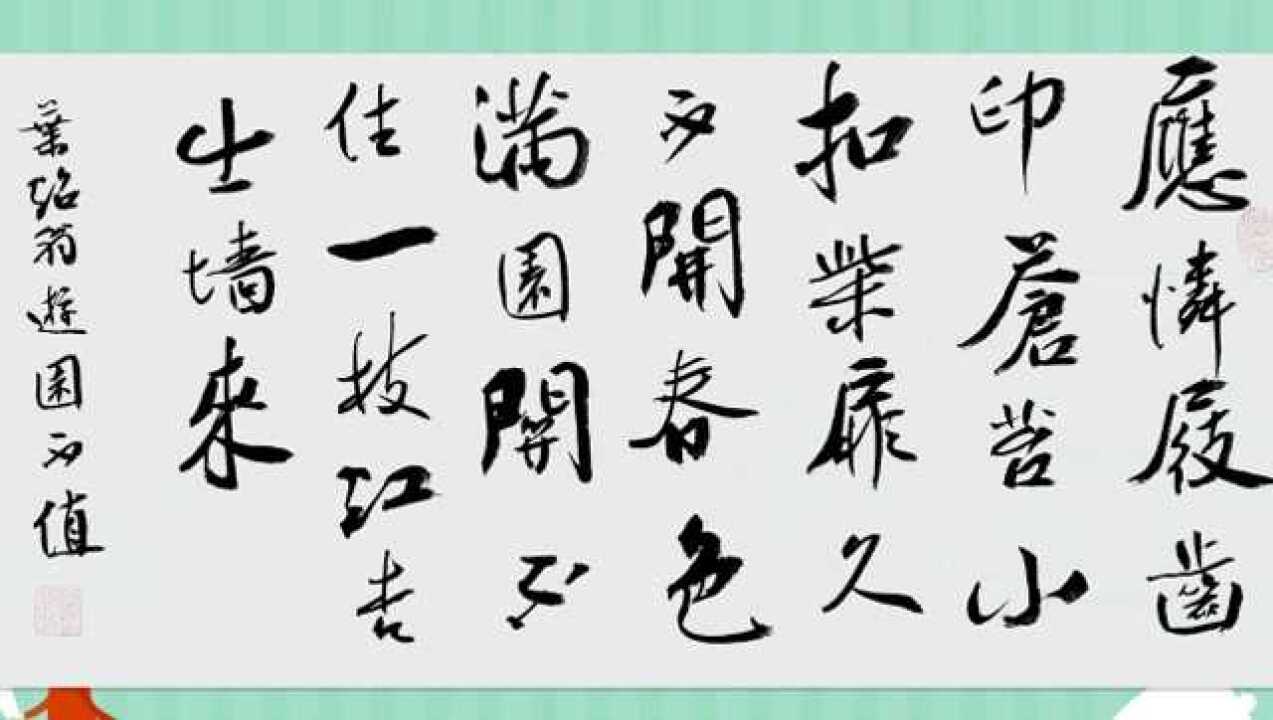 應憐屐齒
印蒼苔小
扣柴扉久
不開春色
滿園関不
住一枝红杏
出墙來
葉绍翁遊園不值